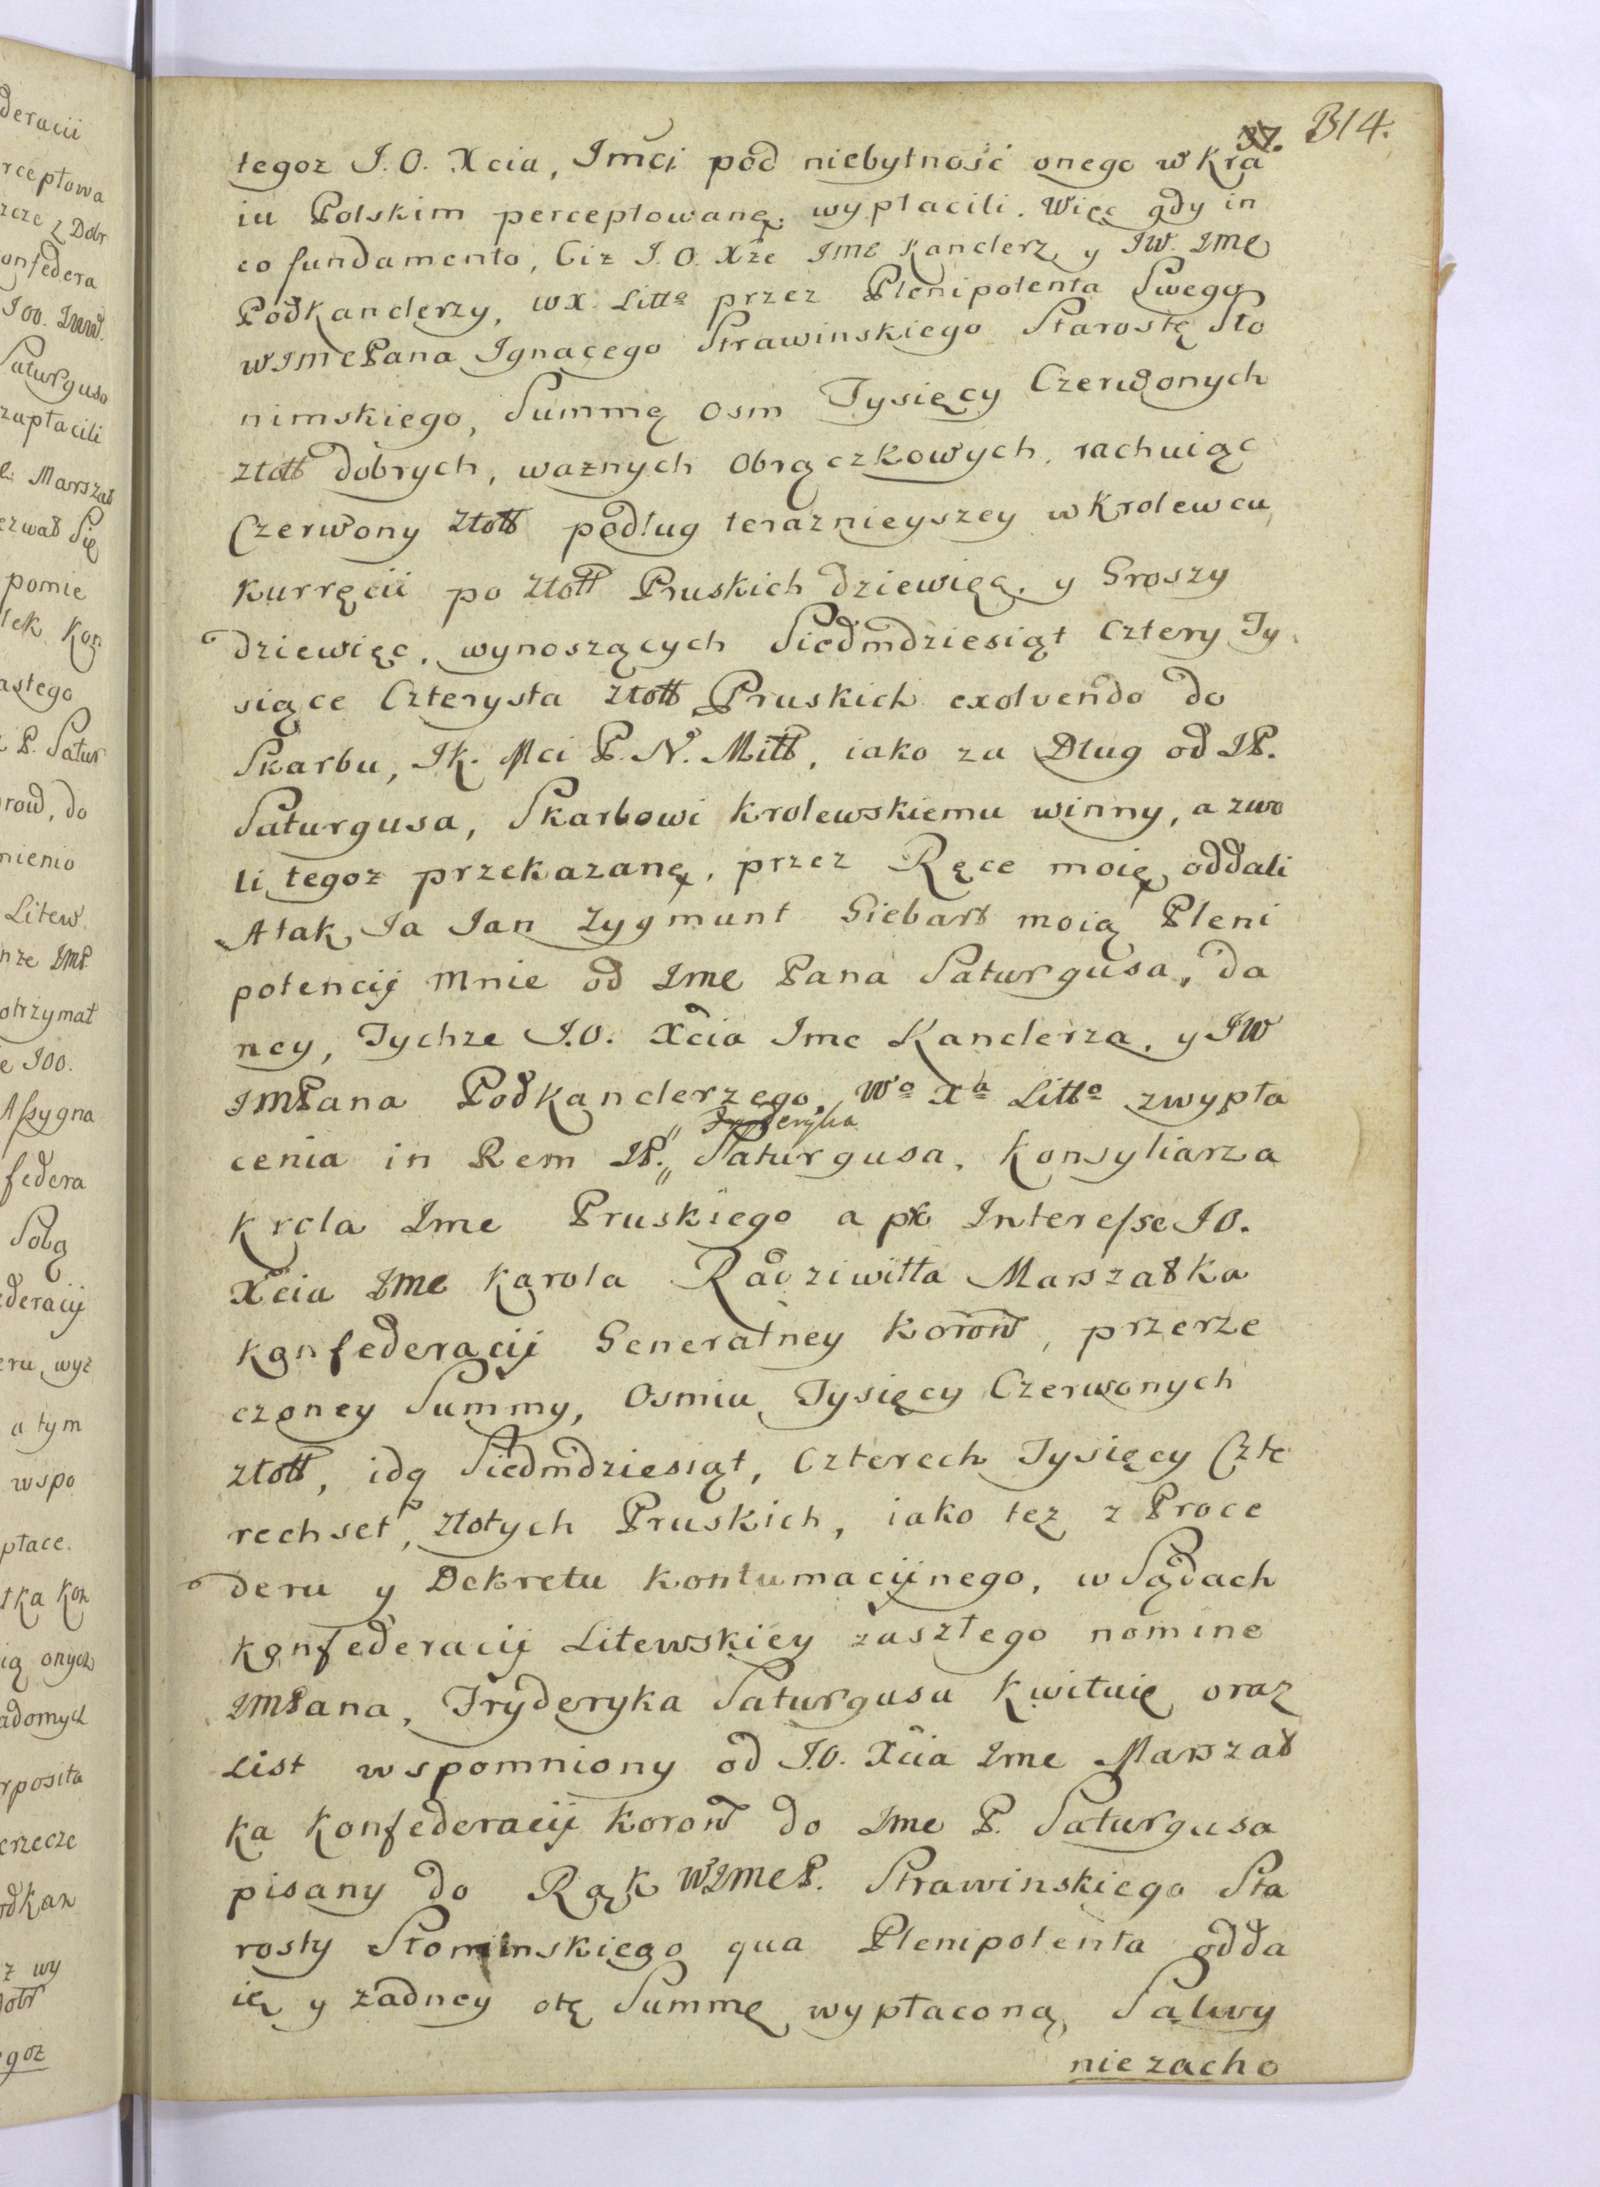 37. 314.
tegoz J.O. Xcia, Jmci pod niebytność onego w Kra
iu Polskim perceptowanę, wypłacili. Więc gdy in
eo fundamento, Ciz J.O. Xże Jme Kanclerz, y JW. Jme
Podkanclerzy, WX. Litto przez Plenipotenta Swego
WJmePana Ignacego Strawinskiego Starostę Sło
nimskiego, Summę Osm Tysięcy Czerwonych
złott dobrych, waznych Obrączkowych, rachuiąc
Czerwony złott podług teraznieyszey w Krolewcu
kurręcii po złott Pruskich dziewięć, y Groszy
dziewięć, wynoszących Siedmdziesiąt Cztery Ty
siące Czterysta złott Pruskich exolvendo do
Skarbu, Jk. Mci P. N. Mitt, iako za Dług od JP.
Saturgusa, Skarbowi Krolewskiemu winny, a zwo
li tegoz przekazanę, przez Ręce moię oddali
A tak Ja Jan Zygmunt Giebart moią Pleni
potencij mnie od Jme Pana Saturgusa, da
ney, Tychze J.O. Xcia Jmc Kanclerza, y JW
JMPana Podkanclerzego, Wo Xa Litto z wypła
cenia in Rem JP. Fryderyka Saturgusa, Konsyliarza
Krola Jme Pruskiego a pro Interesse JO.
Xcia Jme Karola Radziwiłła Marszałka
Konfederacij Generalney Koron, przerze
czoney Summy, Osmiu Tysięcy Czerwonych
złott, idq Siedmdziesiąt, Czterech Tysięcy Czte
rechset, złotych Pruskich, iako tez z Proce
deru y Dekretu Kontumacijnego, w Sądach
Konfederacij Litewskiey zaszłego nomine
JMPana, Fryderyka Saturgusa Kwituię oraz
List wspomniony od J.O. Xcia Jme Marszał
ka Konfederacij Koron do Jme P. Saturgusa
pisany do Rąk WJmeP. Strawinskiego Sta
rosty Słonimskiego qua Plenipotenta odda
ię y zadney otę Summę wypłaconą, Salwy
nie zacho